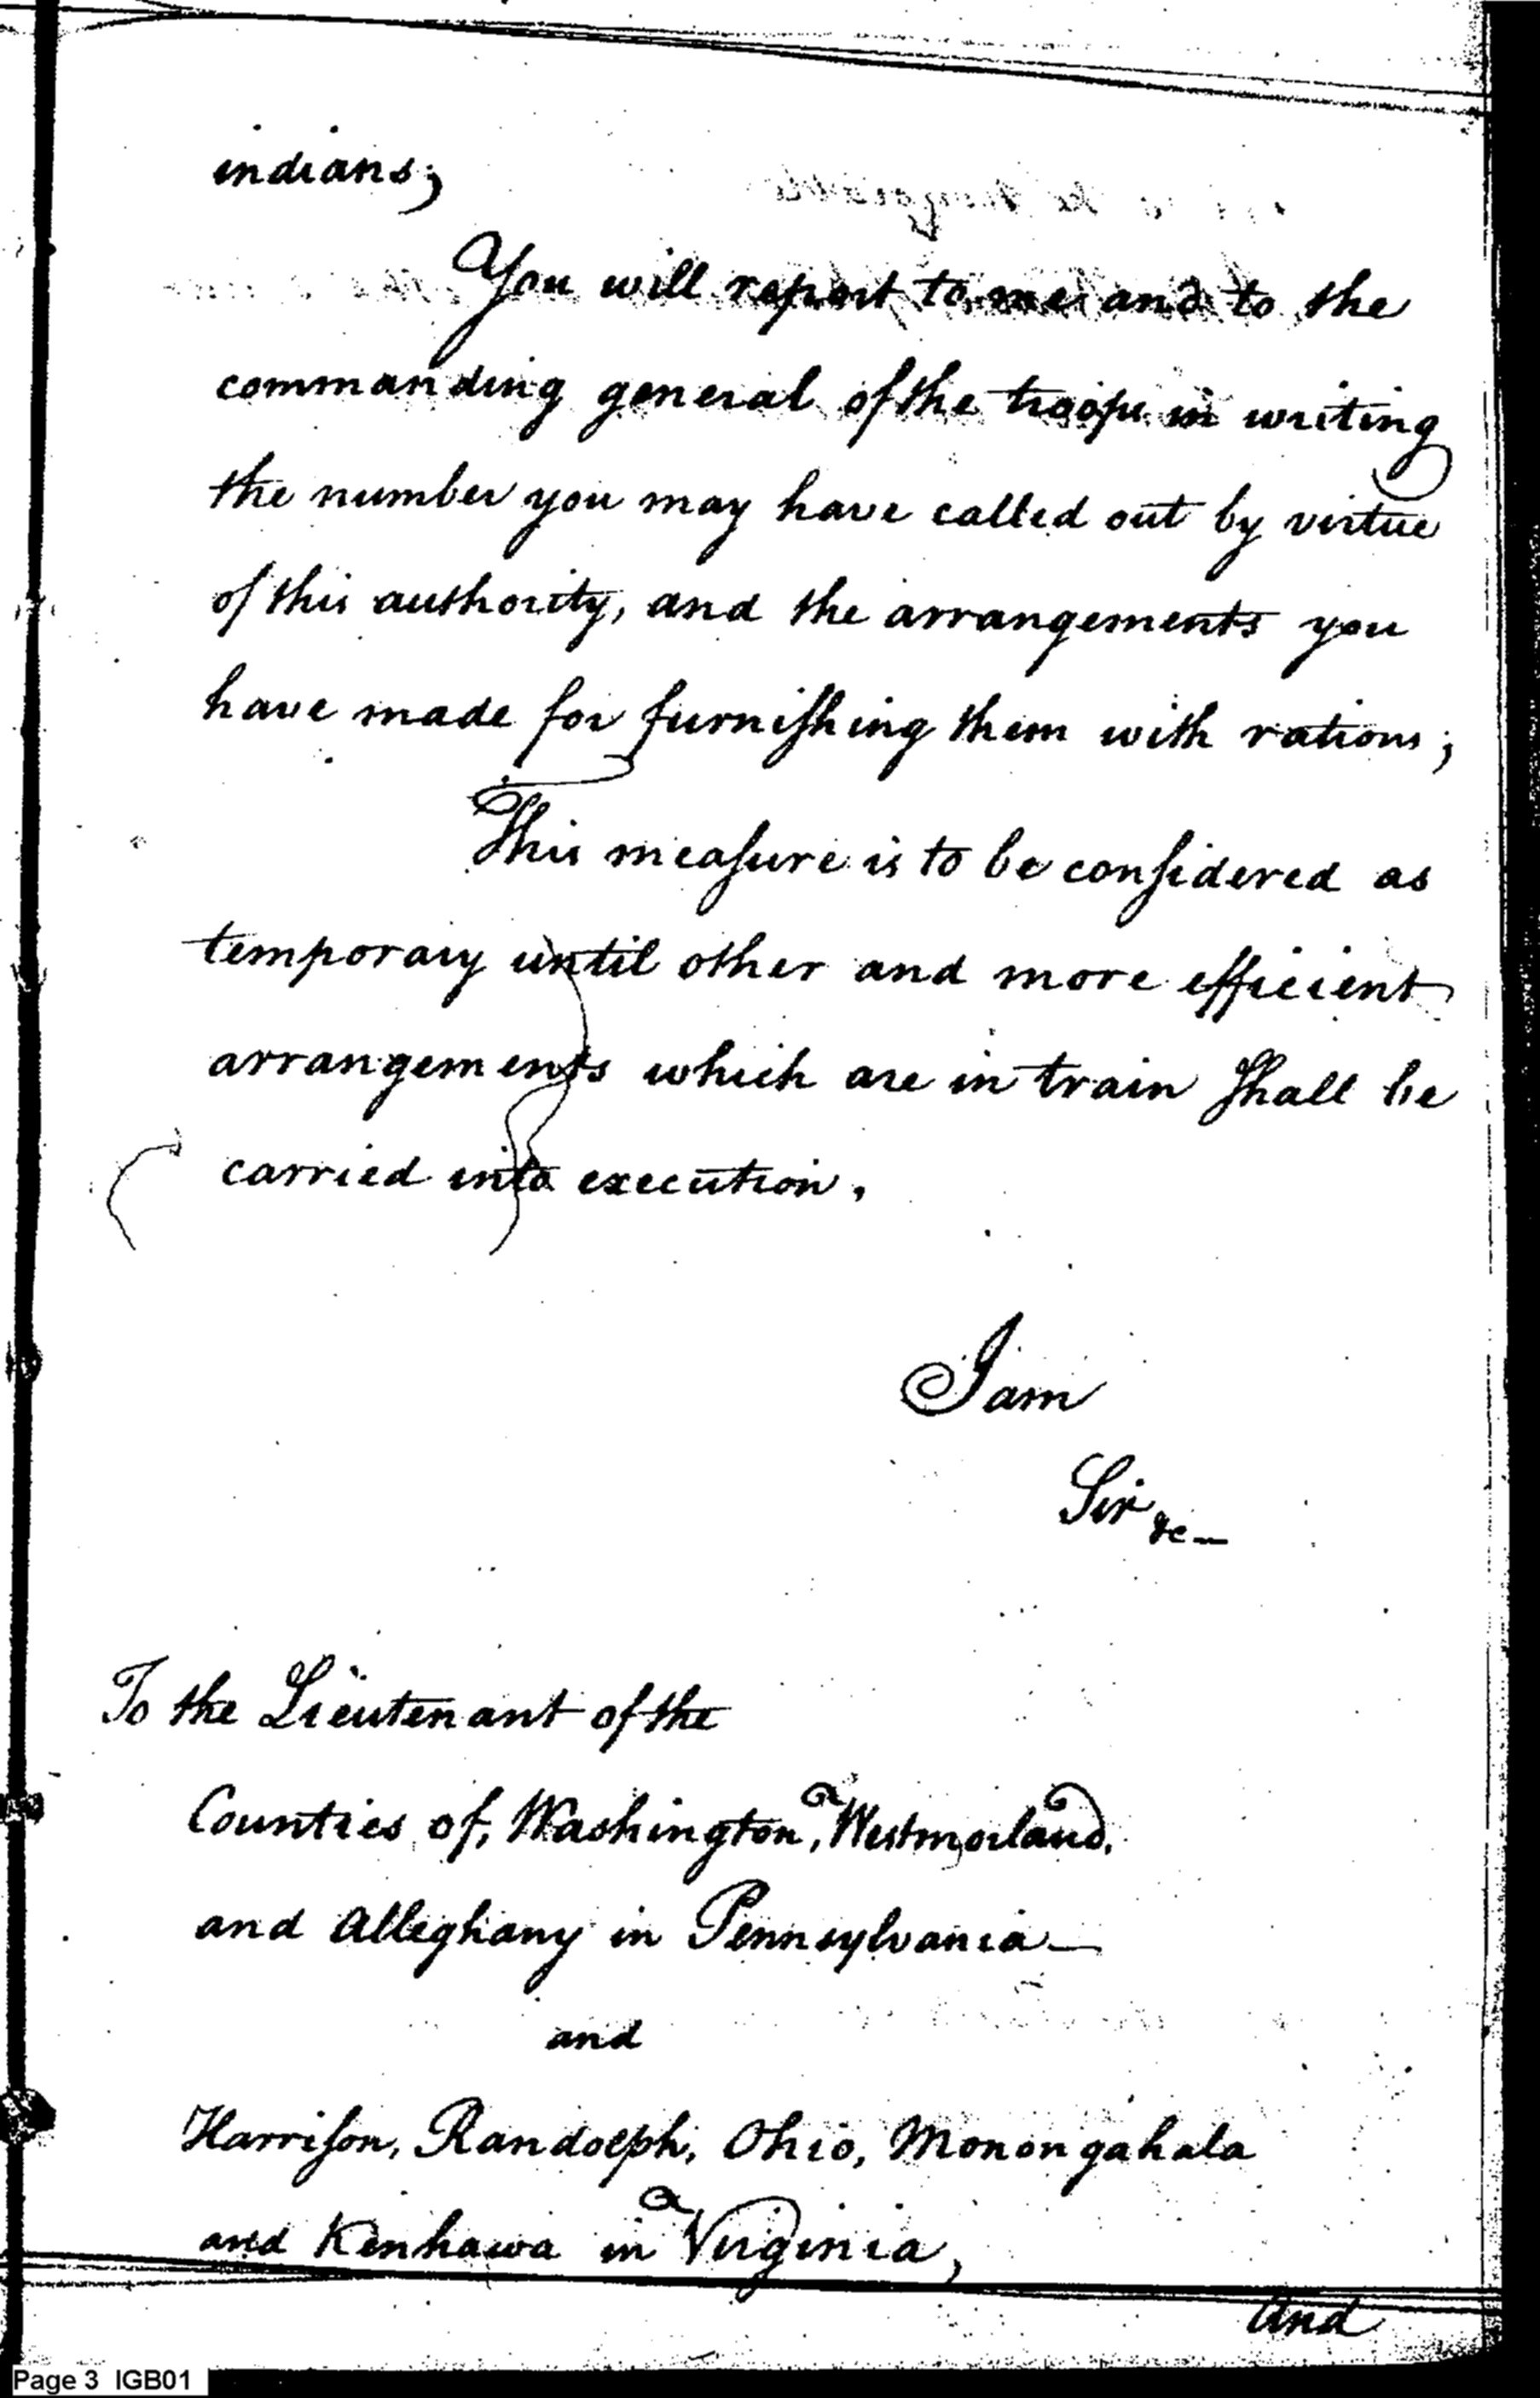 indians;
You will report to me and to the
commanding general of the troops in writing
the number you may have called out by virtue
of this authority, and the arrangements you
have made for furniſhing them with rations;
This meaſure is to be conſidered as
temporary until other and more efficient
arrangements which are in train ſhall be
carried into execution.
I am
Sir &c—
To the Lieutenant of the
Counties of, Washington, Westmorland.
and Alleghany in Pennsylvania—
and
Harriſon, Randolph, Ohio, Monongahala
and Kenhawa in Virginia,
And
Page 3 IGB01